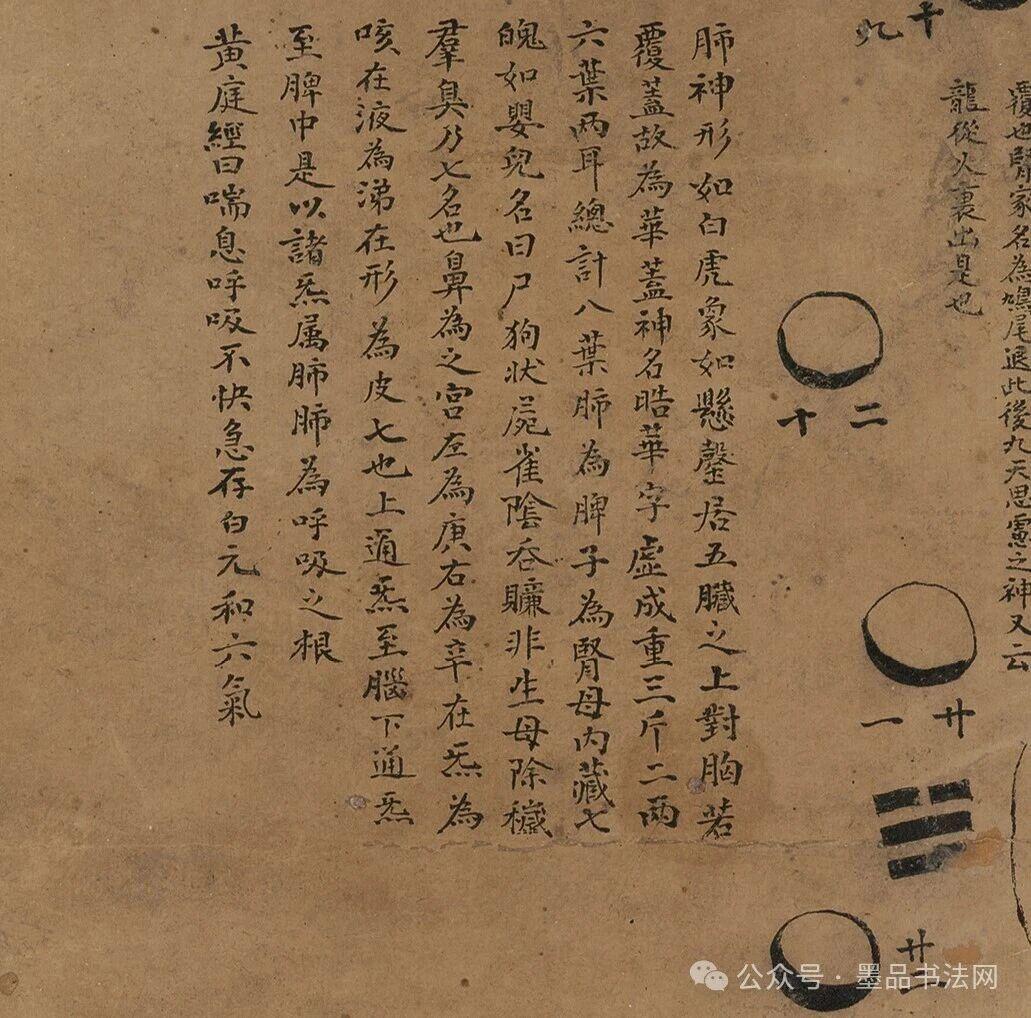 覆也腎家名為鳩尾過此後九天思慮之神又云
龍從火裏出是也
十九
二十
廿一
廿二
肺神形如白虎象如懸磬居五臟之上對胸若
覆蓋故為華蓋神名晧華字虛成重三斤二兩
六葉兩耳總計八葉肺為脾子為腎母內藏七
魄如嬰兒名曰尸狗伏屍雀陰吞賺非生母除穢
羣臭乃七名也鼻為之宮左為庚右為辛在炁為
咳在液為涕在形為皮七也上通炁至腦下通炁
至脾中是以諸炁属肺肺為呼吸之根
黃庭經曰喘息呼吸不快急存白元和六氣
公众号·墨品书法网